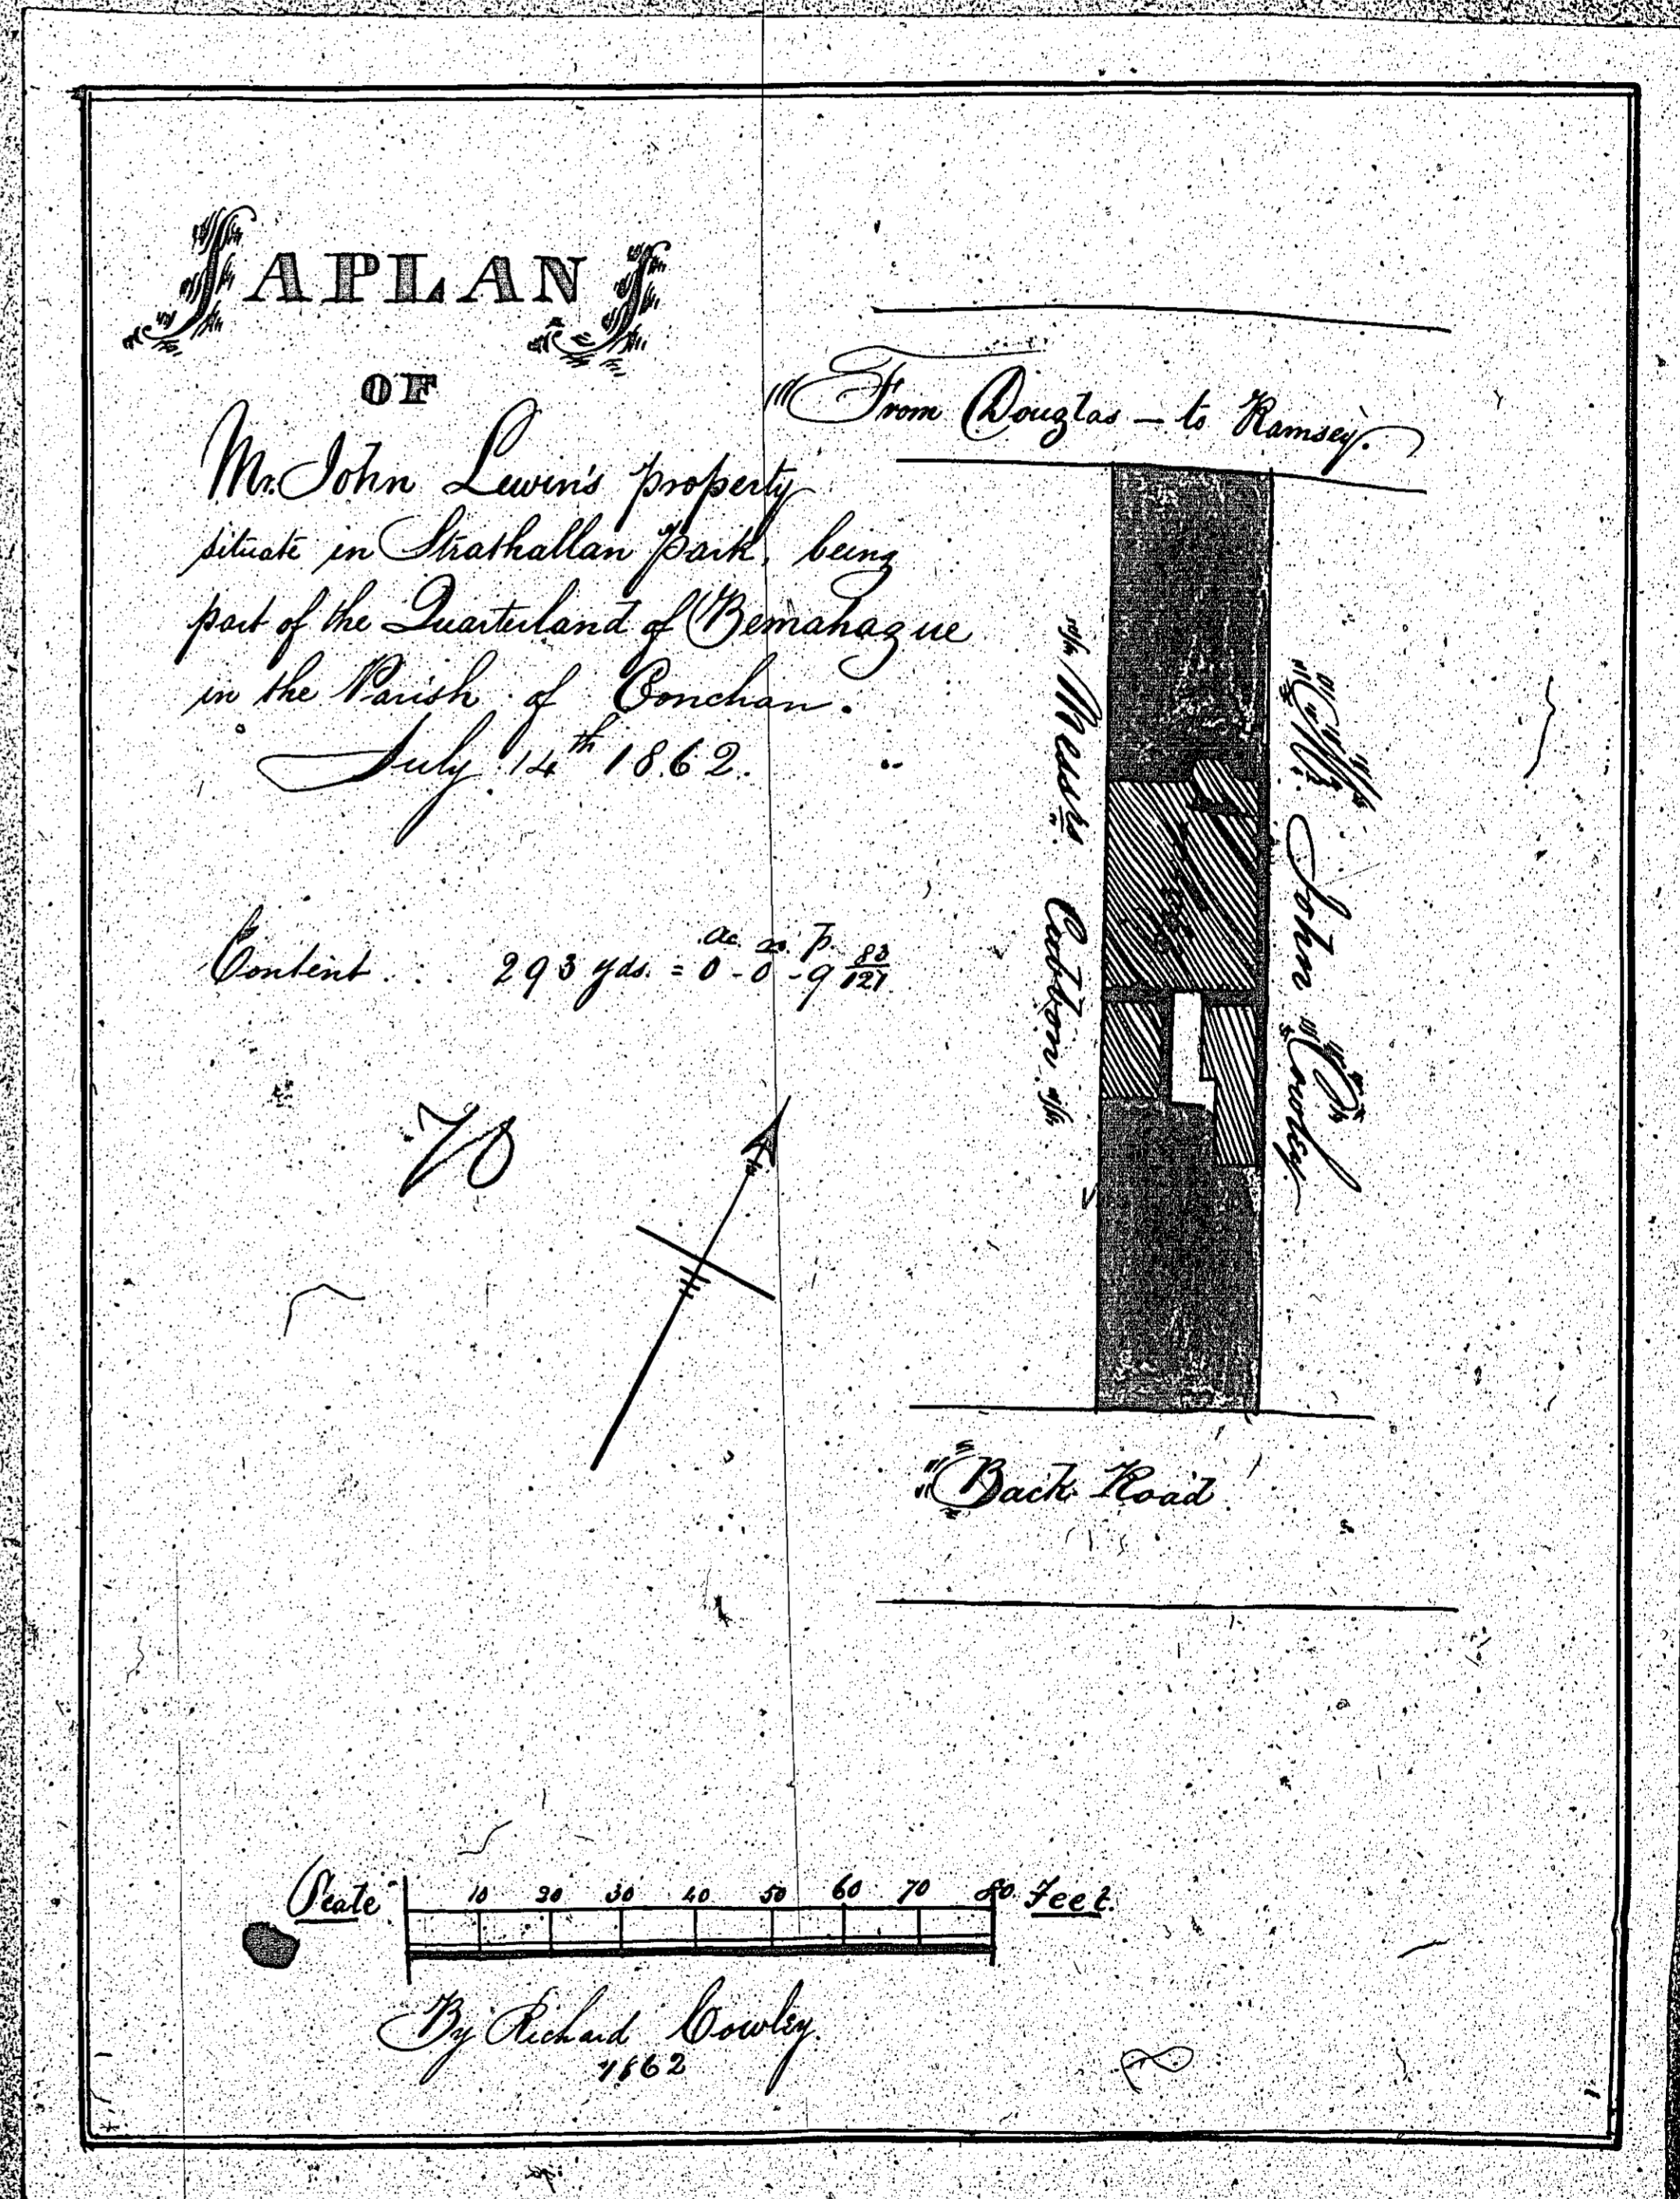 A PLAN
OF
Mr. John Lewin's property
situate in Strathallan Park, being
part of the Quarterland of Bemahague
in the Parish of Conchan.
July 14th 1862.
Content 293 yds. = 0 - 0 - 9 83/121
ac. ro. p.
70
"From Douglas – to Ramsey.
Messrs. Cubbon
Mr. John Cowley
"Back Road
Scale 10 20 30 40 50 60 70 80 Feet.
By Richard Cowley.
1862